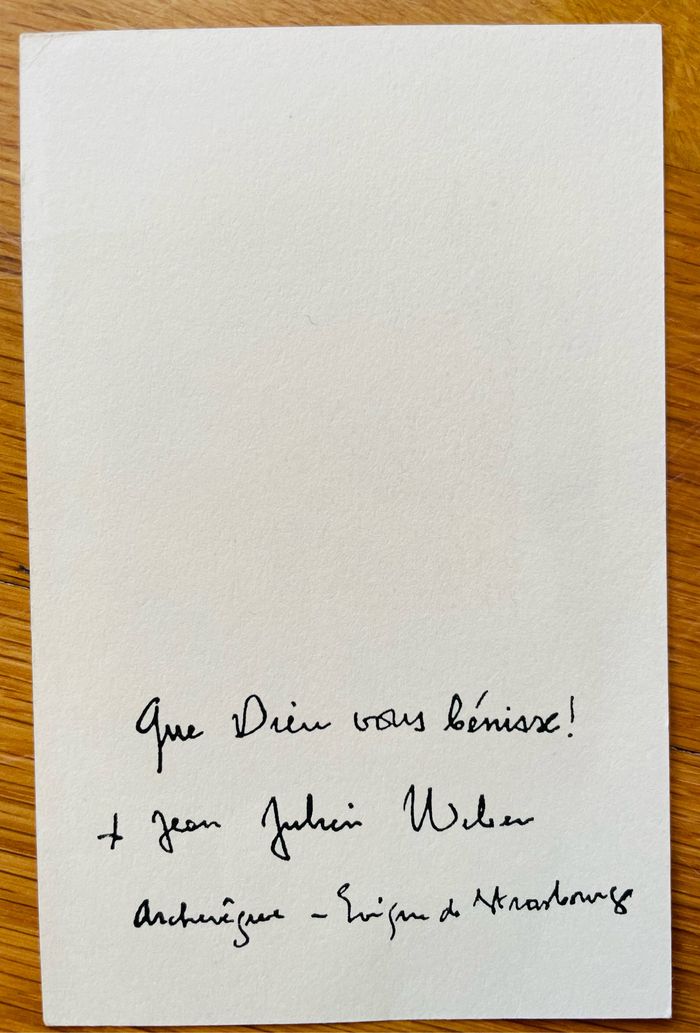 Que Dieu vous bénisse!
+ Jean Julien Weber
Archevêque - Evêque de Strasbourg